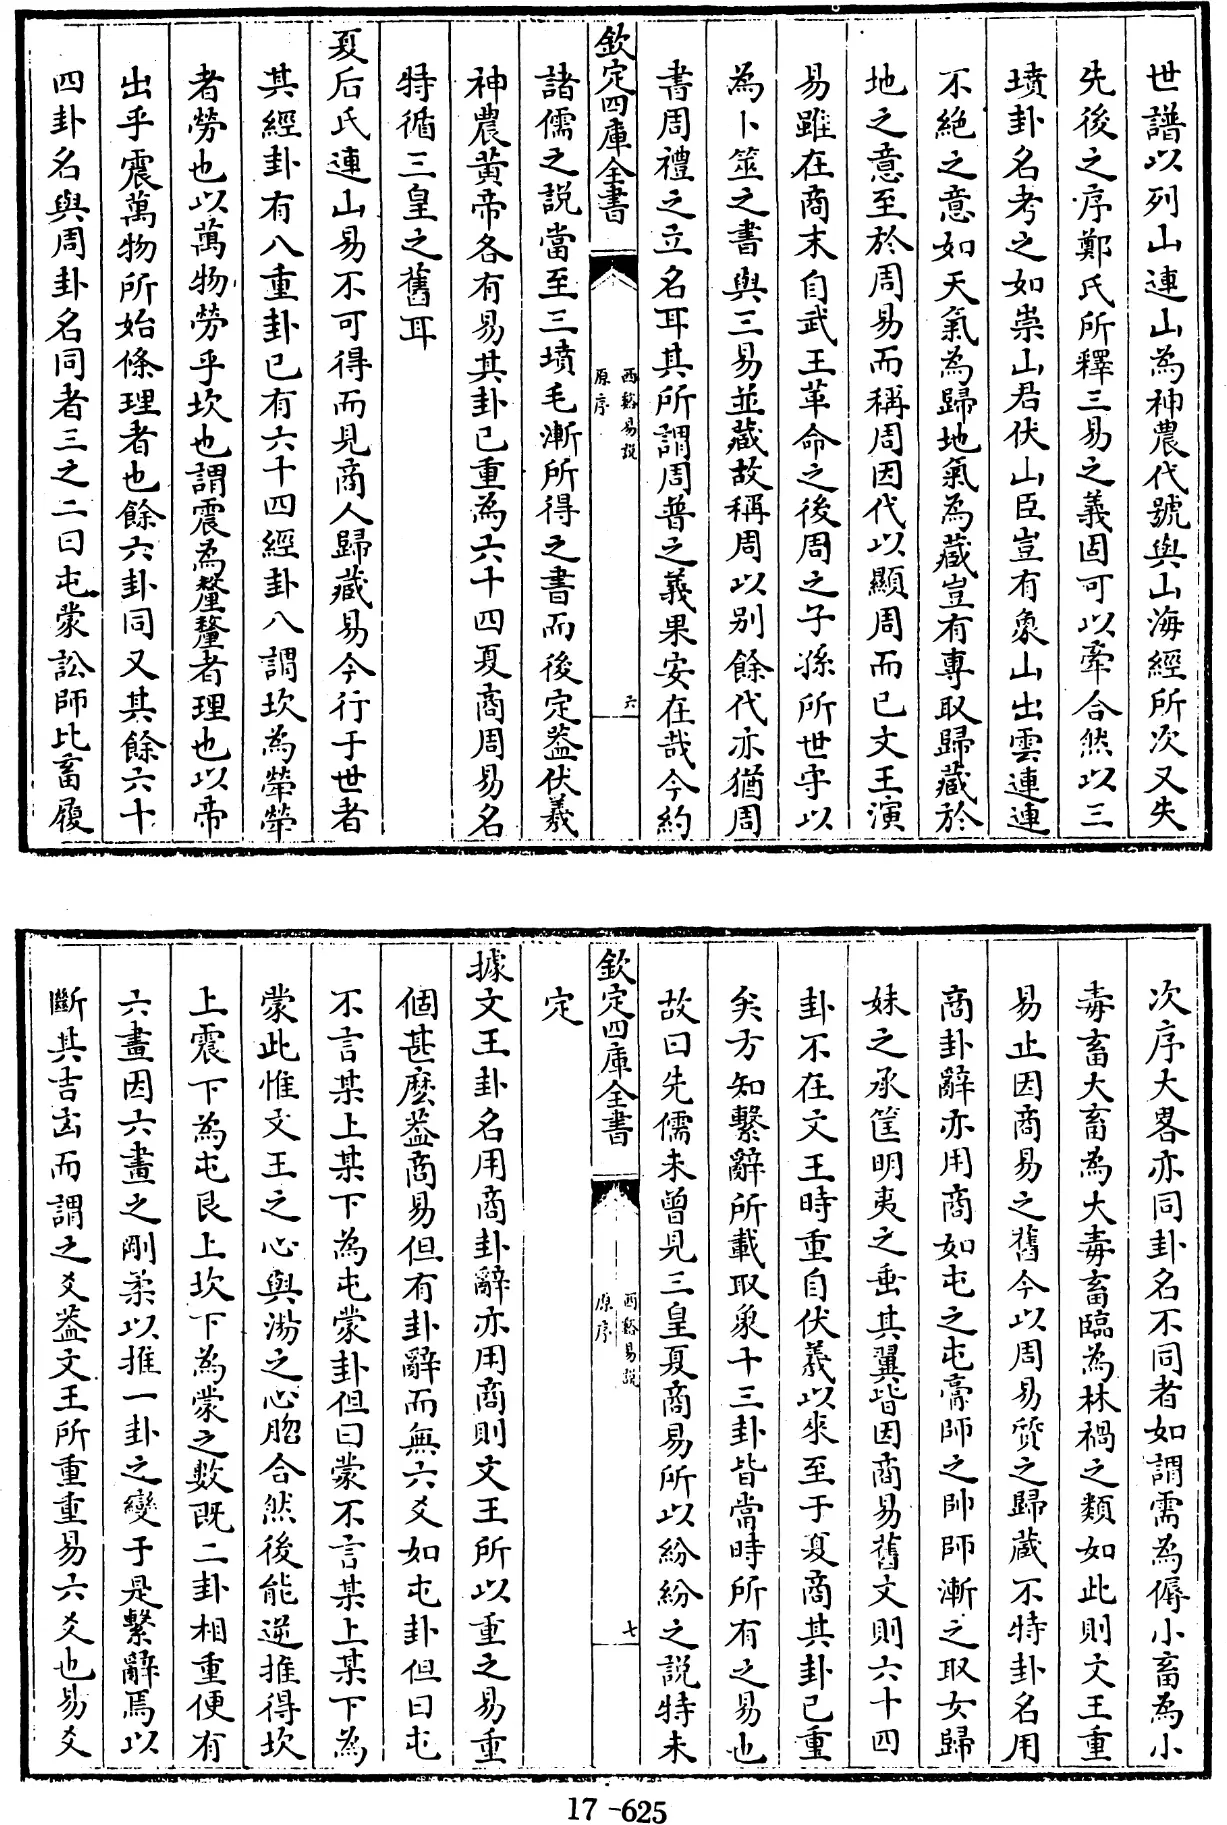 世譜以列山連山為神農代號與山海經所次又失
先後之序鄭氏所釋三易之義固可以牽合然以三
墳卦名考之如崇山君伏山臣豈有象山出雲連連
不絶之意如天氣為歸地氣為藏豈有專取歸藏於
地之意至於周易而稱周因代以顯周而已文王演
易雖在商末自武王革命之後周之子孫所世守以
為卜筮之書與三易並藏故稱周以别餘代亦猶周
書周禮之立名耳其所謂周普之義果安在哉今約
欽定四庫全書
西谿易說
原序
六
諸儒之説當至三墳毛漸所得之書而後定葢伏羲
神農黄帝各有易其卦已重為六十四夏商周易名
特循三皇之舊耳
夏后氏連山易不可得而見商人歸藏易今行于世者
其經卦有八重卦已有六十四經卦八謂坎為犖犖
者勞也以萬物勞乎坎也謂震為釐釐者理也以帝
出乎震萬物所始條理者也餘六卦同又其餘六十
四卦名與周卦名同者三之二曰屯蒙訟師比畜履
次序大畧亦同卦名不同者如謂需為溽小畜為小
毒畜大畜為大毒畜臨為林禍之類如此則文王重
易止因商易之舊今以周易質之歸藏不特卦名用
商卦辭亦用商如屯之屯膏師之帥師漸之取女歸
妹之承筐明夷之垂其翼皆因商易舊文則六十四
卦不在文王時重自伏羲以來至于夏商其卦已重
矣方知繫辭所載取象十三卦皆當時所有之易也
故曰先儒未曽見三皇夏商易所以紛紛之說特未
欽定四庫全書
西谿易說
原序
七
定
據文王卦名用商卦辭亦用商則文王所以重之易重
個甚麽葢商易但有卦辭而無六爻如屯卦但曰屯
不言某上某下為屯蒙卦但曰蒙不言某上某下為
蒙此惟文王之心與湯之心脗合然後能逆推得坎
上震下為屯艮上坎下為蒙之數既二卦相重便有
六畫因六畫之剛柔以推一卦之變于是繫辭焉以
斷其吉凶而謂之爻葢文王所重重易六爻也易爻
17-625